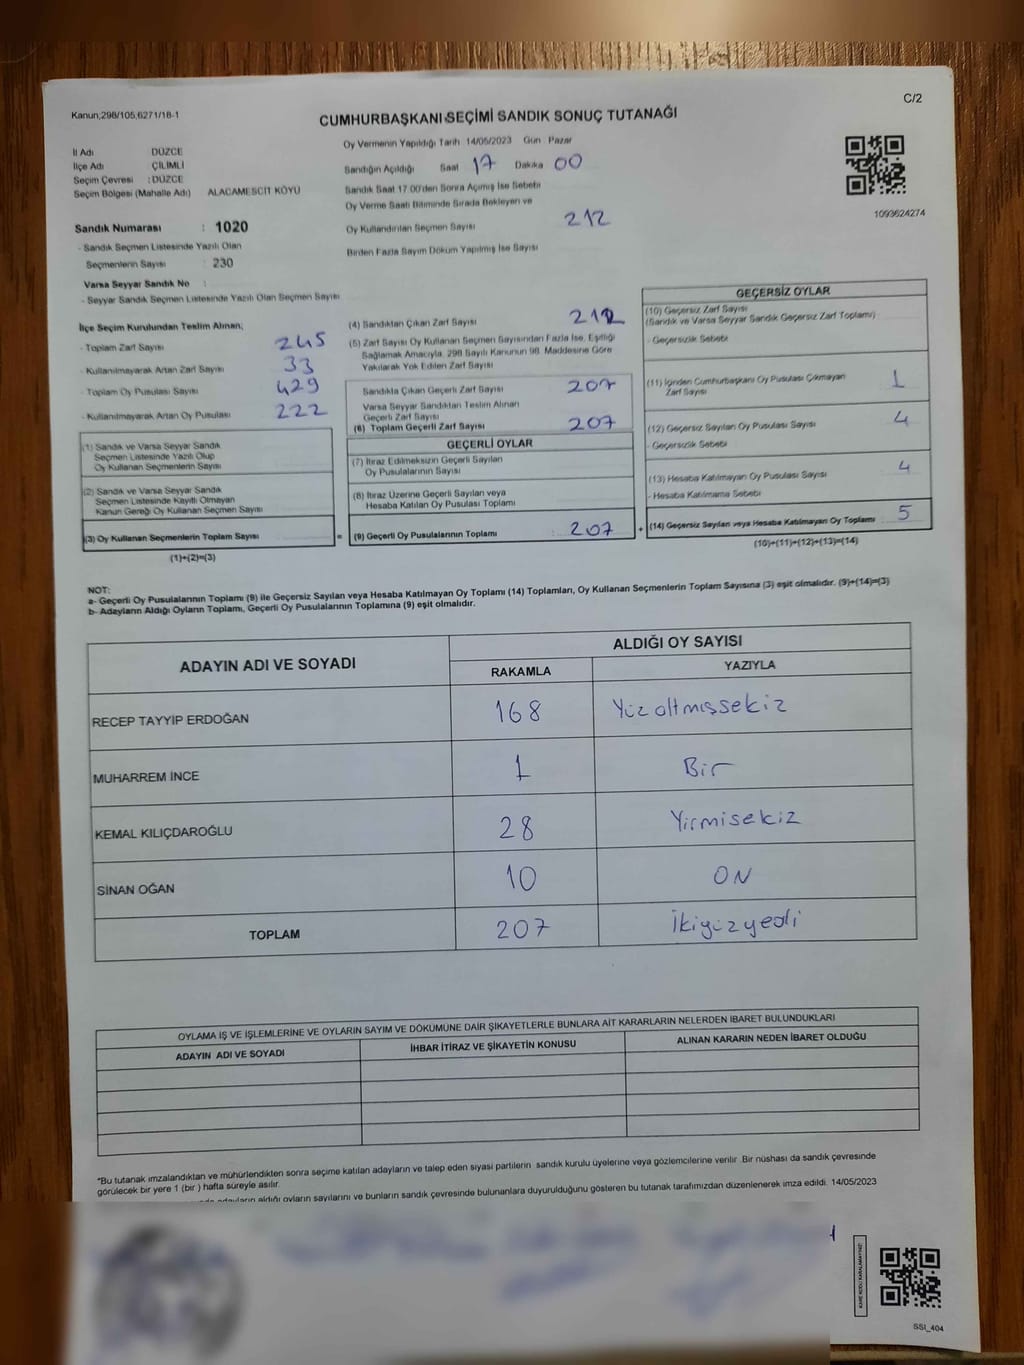 C/2
Kanun;298/105,6271/18-1
CUMHURBAŞKANI SEÇİMİ SANDIK SONUÇ TUTANAĞI
İl Adı DÜZCE
İlçe Adı ÇİLİMLİ
Seçim Çevresi : DÜZCE
Seçim Bölgesi (Mahalle Adı) ALACAMESCİT KÖYÜ
Sandık Numarası : 1020
- Sandık Seçmen Listesinde Yazılı Olan
Seçmenlerin Sayısı : 230
Varsa Seyyar Sandık No :
- Seyyar Sandık Seçmen Listesinde Yazılı Olan Seçmen Sayısı
Oy Vermenin Yapıldığı Tarih 14/05/2023 Gün : Pazar
Sandığın Açıldığı Saat 17 Dakika 00
Sandık Saat 17.00'den Sonra Açımış İse Sebebi
Oy Verme Saati Bitiminde Sırada Bekleyen ve
Oy Kullandırılan Seçmen Sayısı 212
Birden Fazla Sayım Döküm Yapılmış İse Sayısı
1093624274
İlçe Seçim Kurulundan Teslim Alınan;
- Toplam Zarf Sayısı 245
- Kullanılmayarak Artan Zarf Sayısı 33
- Toplam Oy Pusulası Sayısı 429
- Kullanılmayarak Artan Oy Pusulası 222
(1) Sandık ve Varsa Seyyar Sandık
Seçmen Listesinde Yazılı Olup
Oy Kullanan Seçmenlerin Sayısı
(2) Sandık ve Varsa Seyyar Sandık
Seçmen Listesinde Kayıtlı Olmayan
Kanun Gereği Oy Kullanan Seçmen Sayısı
(3) Oy Kullanan Seçmenlerin Toplam Sayısı =
(1)+(2)=(3)
(4) Sandıktan Çıkan Zarf Sayısı 212
(5) Zarf Sayısı Oy Kullanan Seçmen Sayısından Fazla İse, Eşitliği
Sağlamak Amacıyla, 298 Sayılı Kanunun 98. Maddesine Göre
Yakılarak Yok Edilen Zarf Sayısı
Sandıkta Çıkan Geçerli Zarf Sayısı 207
Varsa Seyyar Sandıktan Teslim Alınan
Geçerli Zarf Sayısı
(6) Toplam Geçerli Zarf Sayısı 207
GEÇERLİ OYLAR
(7) İtiraz Edilmeksizin Geçerli Sayılan
Oy Pusulalarının Sayısı
(8) İtiraz Üzerine Geçerli Sayılan veya
Hesaba Katılan Oy Pusulası Toplamı
(9) Geçerli Oy Pusulalarının Toplamı 207 +
GEÇERSİZ OYLAR
(10) Geçersiz Zarf Sayısı
(Sandık ve Varsa Seyyar Sandık Geçersiz Zarf Toplamı)
- Geçersizlik Sebebi
(11) İçinden Cumhurbaşkanı Oy Pusulası Çıkmayan
Zarf Sayısı 1
(12) Geçersiz Sayılan Oy Pusulası Sayısı 4
- Geçersizlik Sebebi
(13) Hesaba Katılmayan Oy Pusulası Sayısı 4
- Hesaba Katılmama Sebebi
(14) Geçersiz Sayılan veya Hesaba Katılmayan Oy Toplamı 5
(10)+(11)+(12)+(13)=(14)
NOT:
a- Geçerli Oy Pusulalarının Toplamı (9) ile Geçersiz Sayılan veya Hesaba Katılmayan Oy Toplamı (14) Toplamları, Oy Kullanan Seçmenlerin Toplam Sayısına (3) eşit olmalıdır. (9)+(14)=(3)
b- Adayların Aldığı Oyların Toplamı, Geçerli Oy Pusulalarının Toplamına (9) eşit olmalıdır.
ADAYIN ADI VE SOYADI ALDIĞI OY SAYISI
RAKAMLA YAZIYLA
RECEP TAYYİP ERDOĞAN 168 Yüz altmışsekiz
MUHARREM İNCE 1 Bir
KEMAL KILIÇDAROĞLU 28 Yirmisekiz
SİNAN OĞAN 10 ON
TOPLAM 207 İkiyüzyedi
OYLAMA İŞ VE İŞLEMLERİNE VE OYLARIN SAYIM VE DÖKÜMÜNE DAİR ŞİKAYETLERLE BUNLARA AİT KARARLARIN NELERDEN İBARET BULUNDUKLARI
ADAYIN ADI VE SOYADI İHBAR İTİRAZ VE ŞİKAYETİN KONUSU ALINAN KARARIN NEDEN İBARET OLDUĞU
*Bu tutanak imzalandıktan ve mühürlendikten sonra seçime katılan adayların ve talep eden siyasi partilerin sandık kurulu üyelerine veya gözlemcilerine verilir. Bir nüshası da sandık çevresinde
görülecek bir yere 1 (bir) hafta süreyle asılır.
adayların aldığı oyların sayılarını ve bunların sandık çevresinde bulunanlara duyurulduğunu gösteren bu tutanak tarafımızdan düzenlenerek imza edildi. 14/05/2023
SSI_404